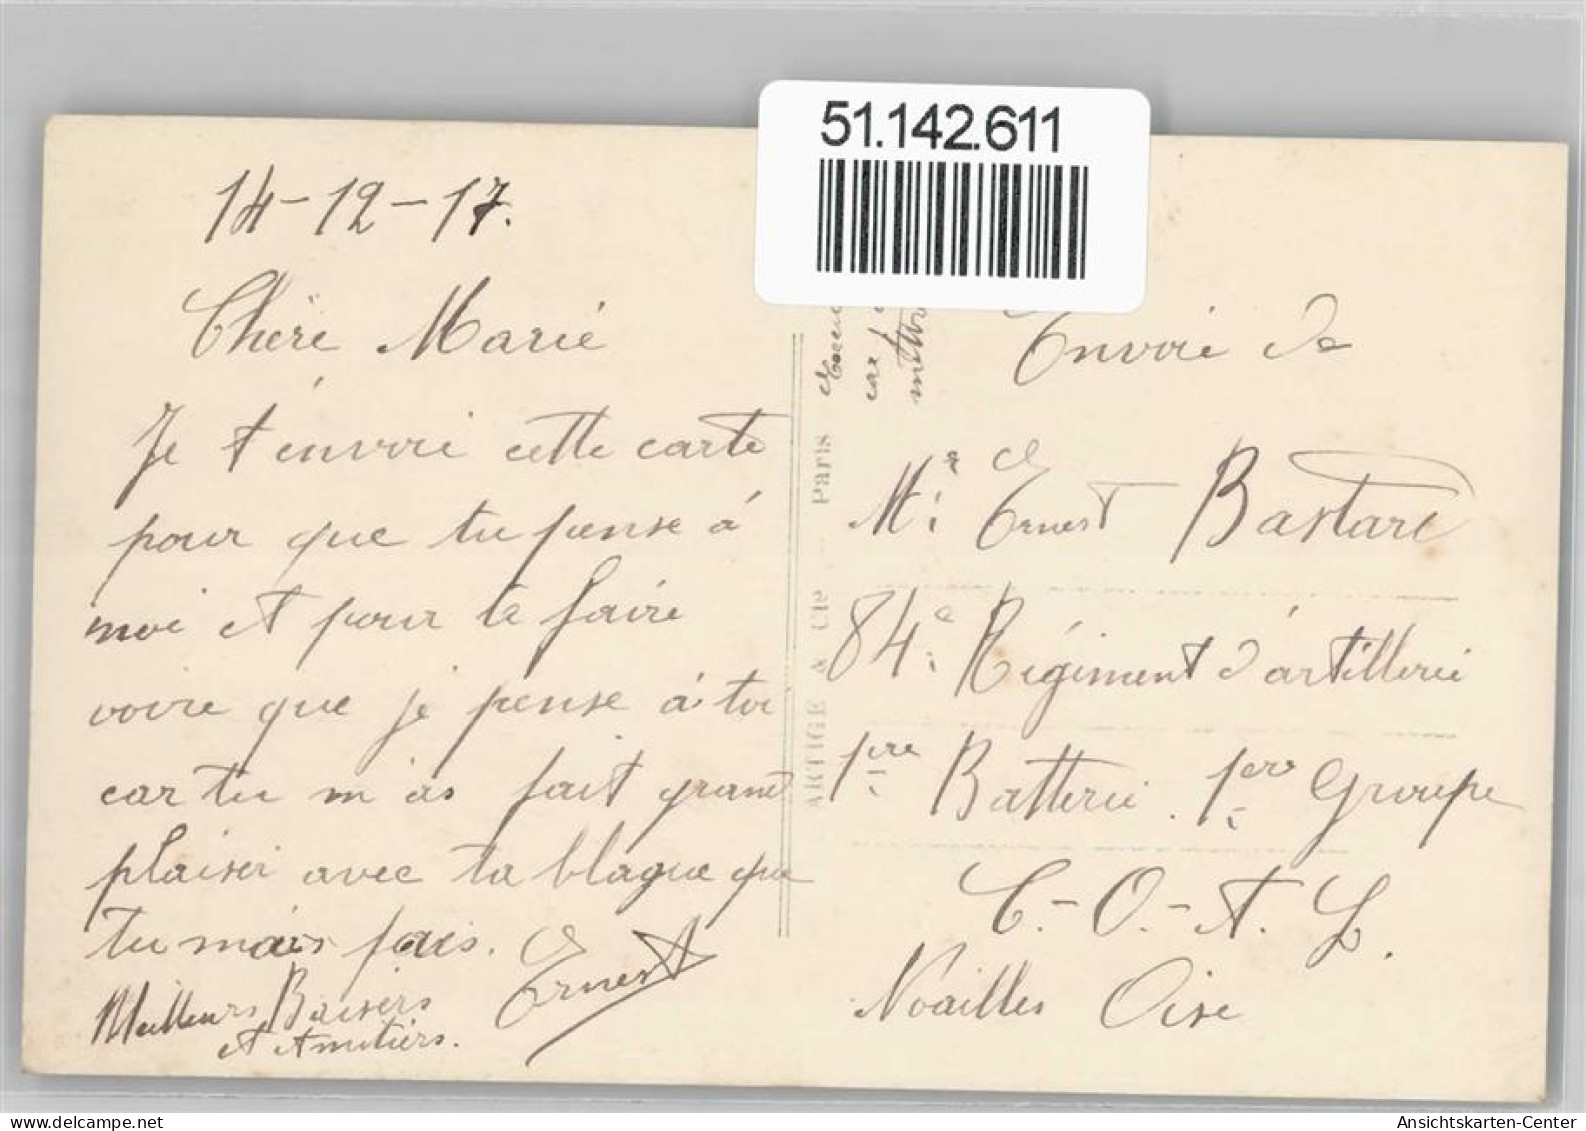 51.142.611
14-12-17.
Chère Marie
Je t'envoi cette carte
pour que tu pense à
moi et pour te faire
voire que je pense à toi
car tu m'as fait grand
plaiser avec ta blague que
tu m'ais fais.
Ernest
Meilleurs Baisers
et Amitiers.
ARTIGE & Cie — Paris
car
Envoie de
Mr Ernest Bastard
84e Régiment d'artillerie
1ère Batterie. 1er Groupe
C.-O.-A. L.
Noailles Oise
Ansichtskarten-Center